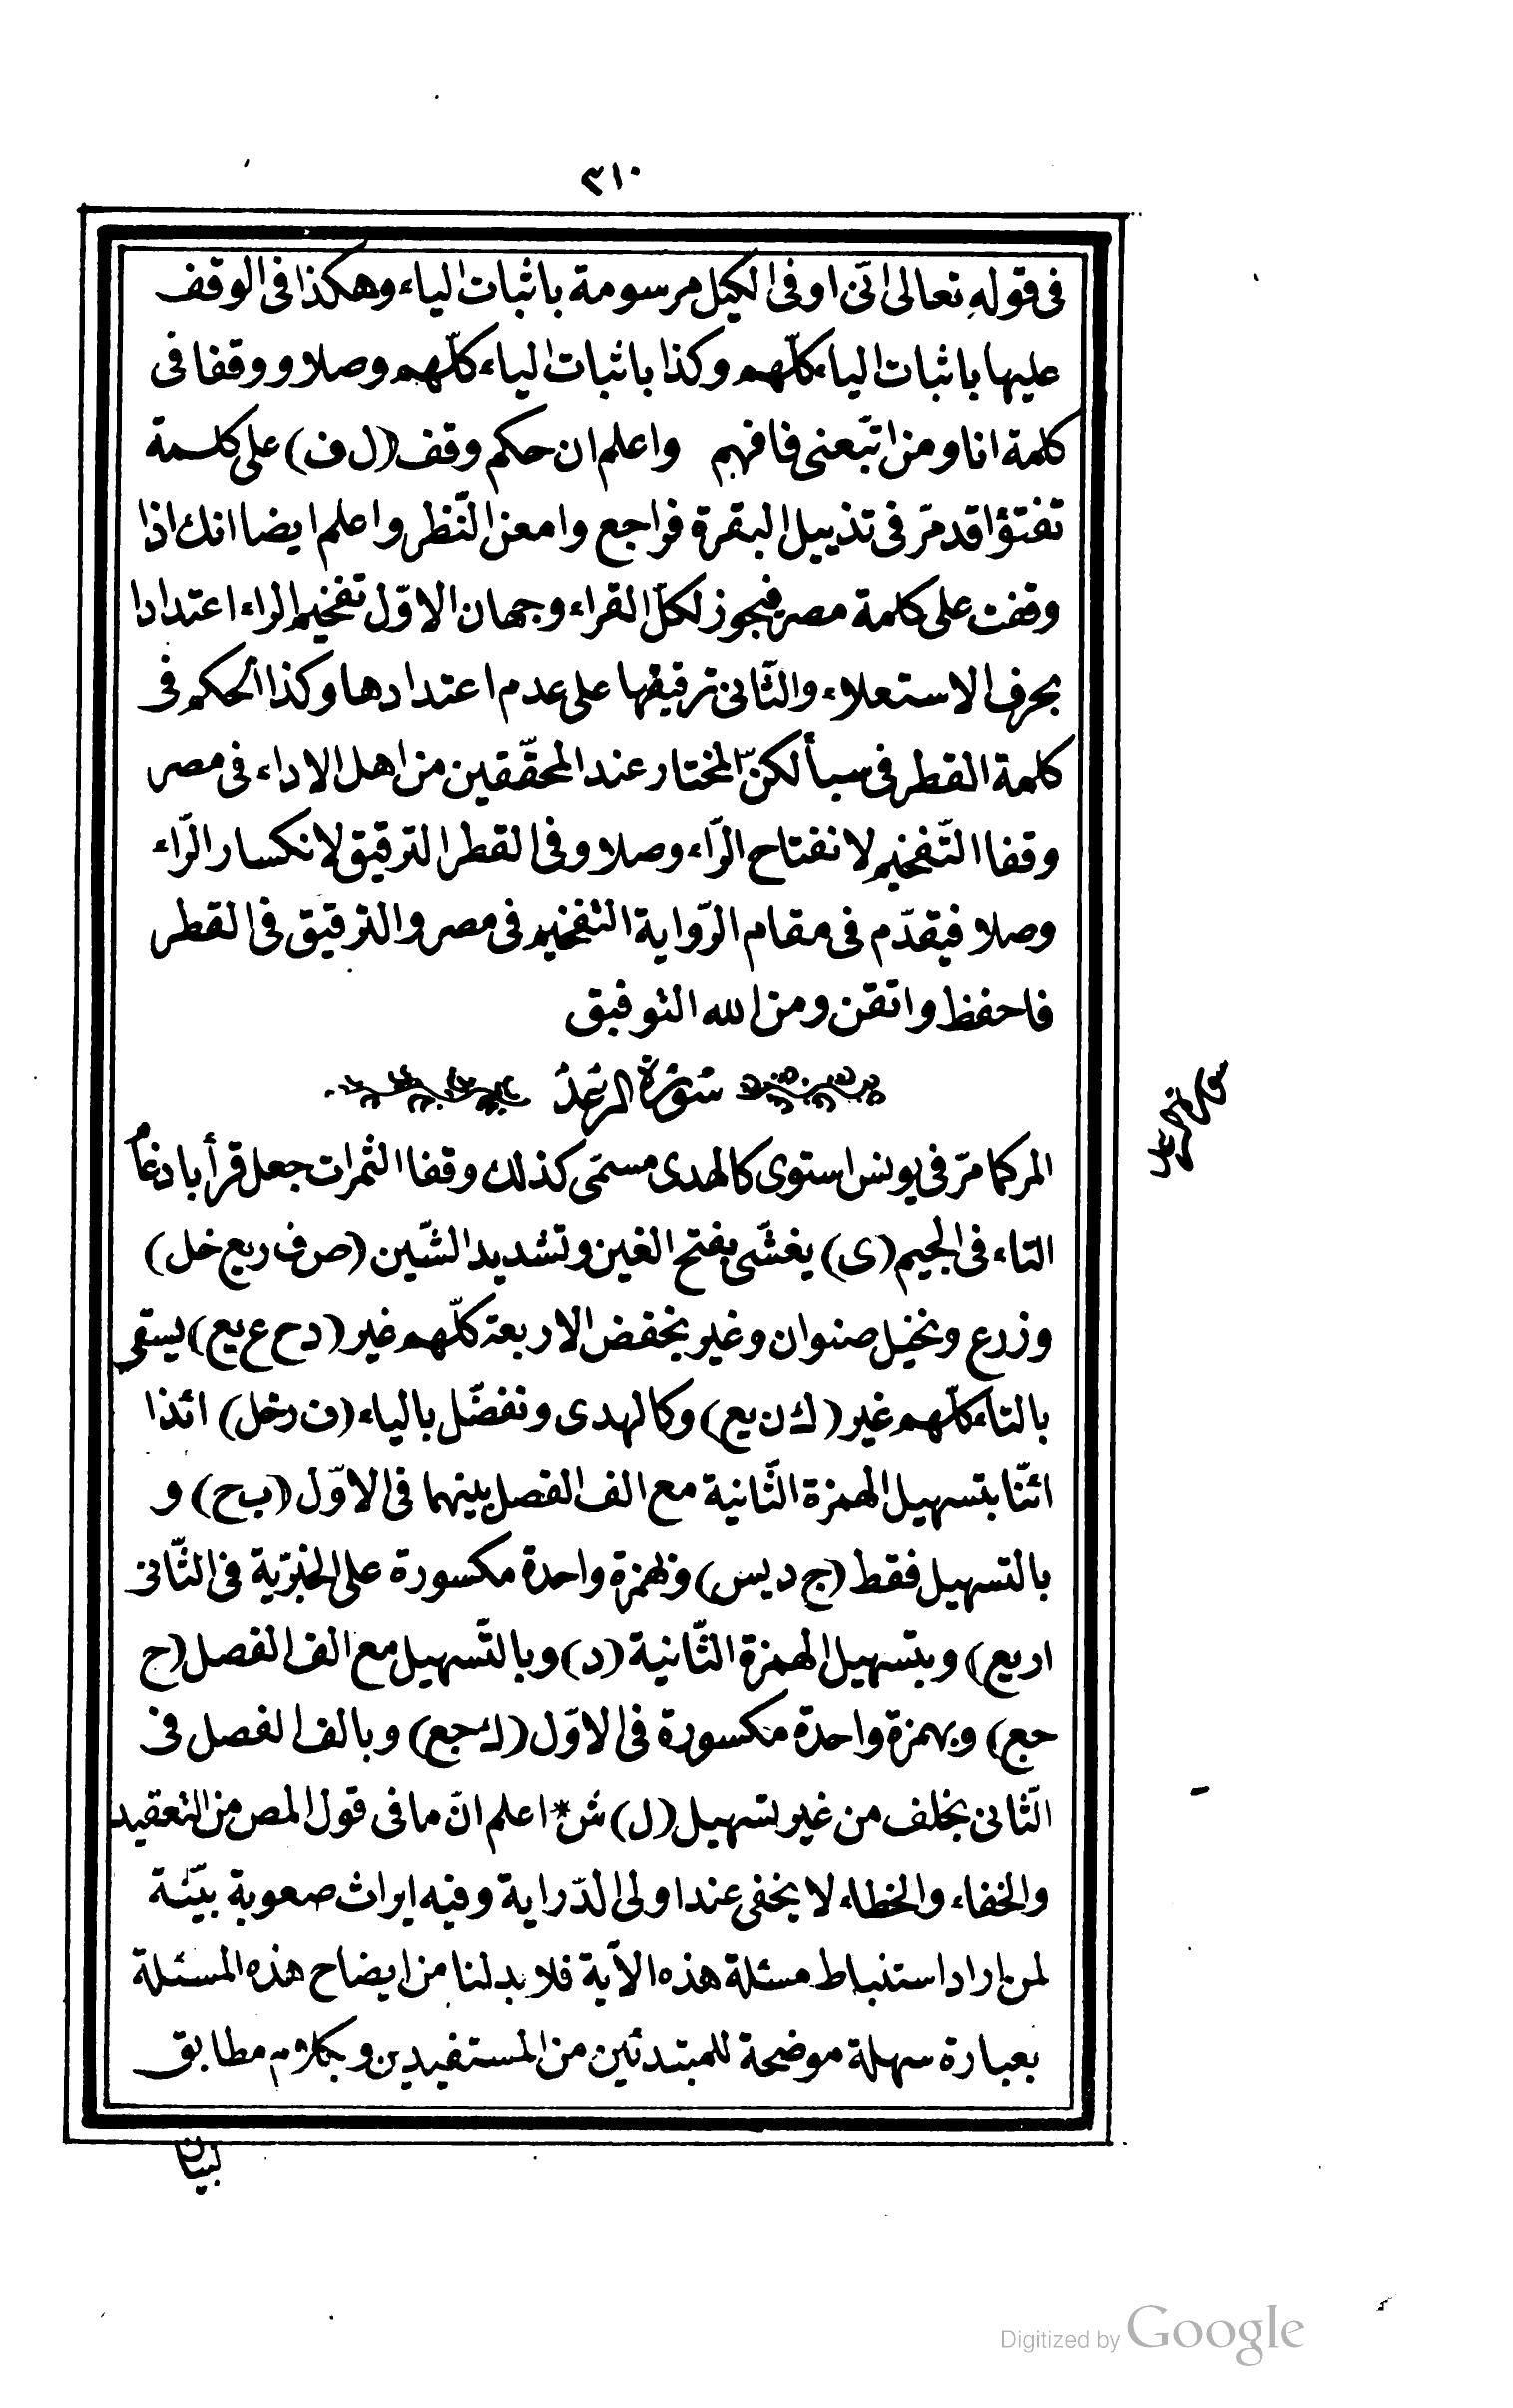 ٣١٠
فى قوله تعالى انّى اوفى الكيل مرسومة باثبات الياء وهكذا فى الوقف
عليها باثبات الياء كلّهم وكذا باثبات الياء كلّهم وصلا ووقفا فى
كلمة انا ومن اتّبعنى فافهم واعلم ان حكم وقف (ل ف) على كلمة
تفتؤا قد مرّ فى تذييل البقرة فراجع وامعن النّظر واعلم ايضا انك اذا
وقفت على كلمة مصر فيجوز لكلّ القراء وجهان الاوّل تفخيم الراء اعتدادا
بحرف الاستعلاء والثّانى ترقيقها على عدم اعتدادها وكذا الحكم فى
كلمة القطر فى سبأ لكنّ المختار عند المحقّقين من اهل الاداء فى مصر
وقفا التّفخيم لانفتاح الرّاء وصلا وفى القطر الترقيق لانكسار الرّاء
وصلا فيقدّم فى مقام الرّواية التفخيم فى مصر والترقيق فى القطر
فاحفظ واتقن ومن الله التوفيق
سورة الرعد
سورة الرعد
المر كما مرّ فى يونس استوى كالهدى مسمّى كذلك وقفا الثمرات جعل قرأ بادغام
التاء فى الجيم (ى) يغشّى بفتح الغين وتشديد الشّين (ص ف ر يع خل)
وزرع ونخيل صنوان وغير بخفض الاربعة كلّهم غير (د ح ع يع) يسقى
بالتاء كلّهم غير (ك ن يع) وكالهدى ونفضّل بالياء (ف ر خل) ائذا
ائنّا بتسهيل الهمزة الثّانية مع الف الفصل بينهما فى الاوّل (ب ح) و
بالتسهيل فقط (ج د يس) وبهمزة واحدة مكسورة على الخبريّة فى الثّانى
ا ر يع) وبتسهيل الهمزة الثّانية (د) وبالتّسهيل مع الف الفصل (ح
جع) وبهمزة واحدة مكسورة فى الاوّل (ك جع) وبالف الفصل فى
الثّانى بخلف من غير تسهيل (ل) ش* اعلم انّ ما فى قول المص من التعقيد
والخفاء والخطاء لا يخفى عند اولى الدّراية وفيه ايراث صعوبة بيّنة
لمن اراد استنباط مسئلة هذه الآية فلا بد لنا من ايضاح هذه المسئلة
بعبارة سهلة موضحة للمبتدئين من المستفيدين وبكلام مطابق
لبيان
Digitized by Google